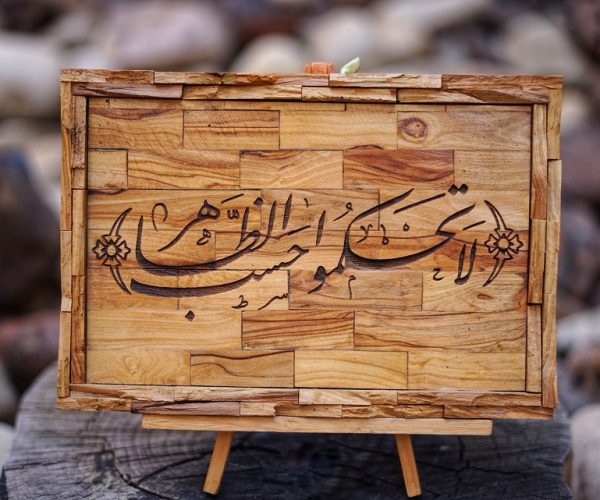 لَا تحكموا حسب الظَّاهر